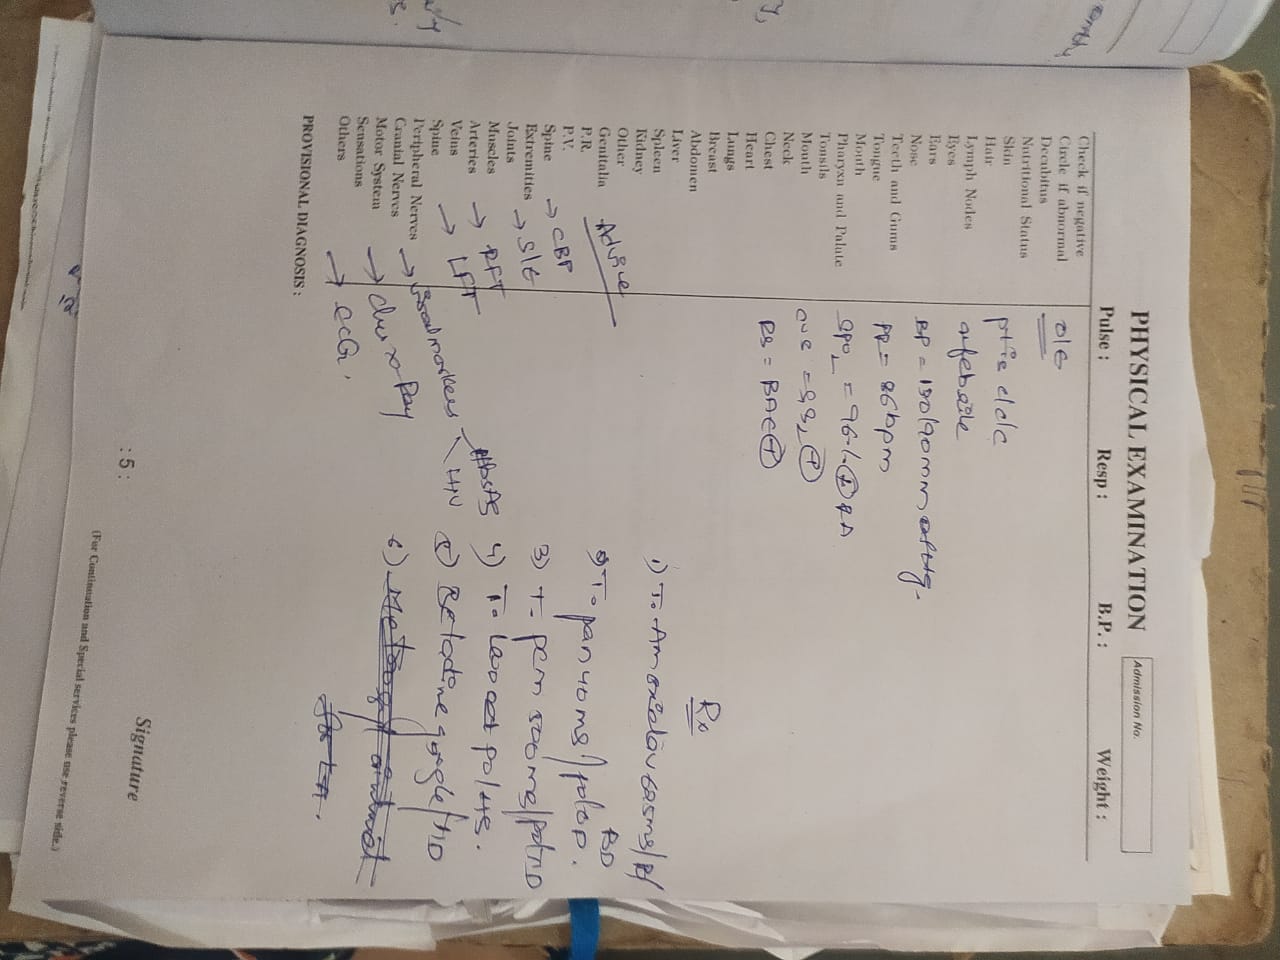 PHYSICAL EXAMINATION
Admission No.
Pulse : Resp : B.P. : Weight :
Check if negative
Circle if abnormal
Decubitus
Nutritional Status
Skin
Hair
Lymph Nodes
Eyes
Ears
Nose
Teeth and Gums
Tongue
Mouth
Pharynx and Palate
Tonsils
Mouth
Neck
Chest
Heart
Lungs
Breast
Abdomen
Liver
Spleen
Kidney
Other
Genitalia
P.R.
P.V.
Spine
Extremities
Joints
Muscles
Arteries
Veins
Spine
Peripheral Nerves
Cranial Nerves
Motor System
Sensations
Others
O/E
pt is c/c/c
afebrile
BP = 130/90 mm of Hg.
PR = 86 bpm
SPO2 = 96% RA
CVS = S1S2 +
RS = BAE +
Advise
→ CBP
→ S/E
→ RFT
→ LFT
→ Viral markers HBsAg HIV
→ Chest x-Ray
→ ECG.
Rx
1) T. Amoxiclav 625mg/
BD
2) T. pan 40 mg/po/OD.
3) T. pcm 500mg/po/TID
4) T. levocet po/HS.
5) Betadine gargle/TID
6)
PROVISIONAL DIAGNOSIS :
Signature
: 5 :
(For Continuation and Special services please use reverse side.)